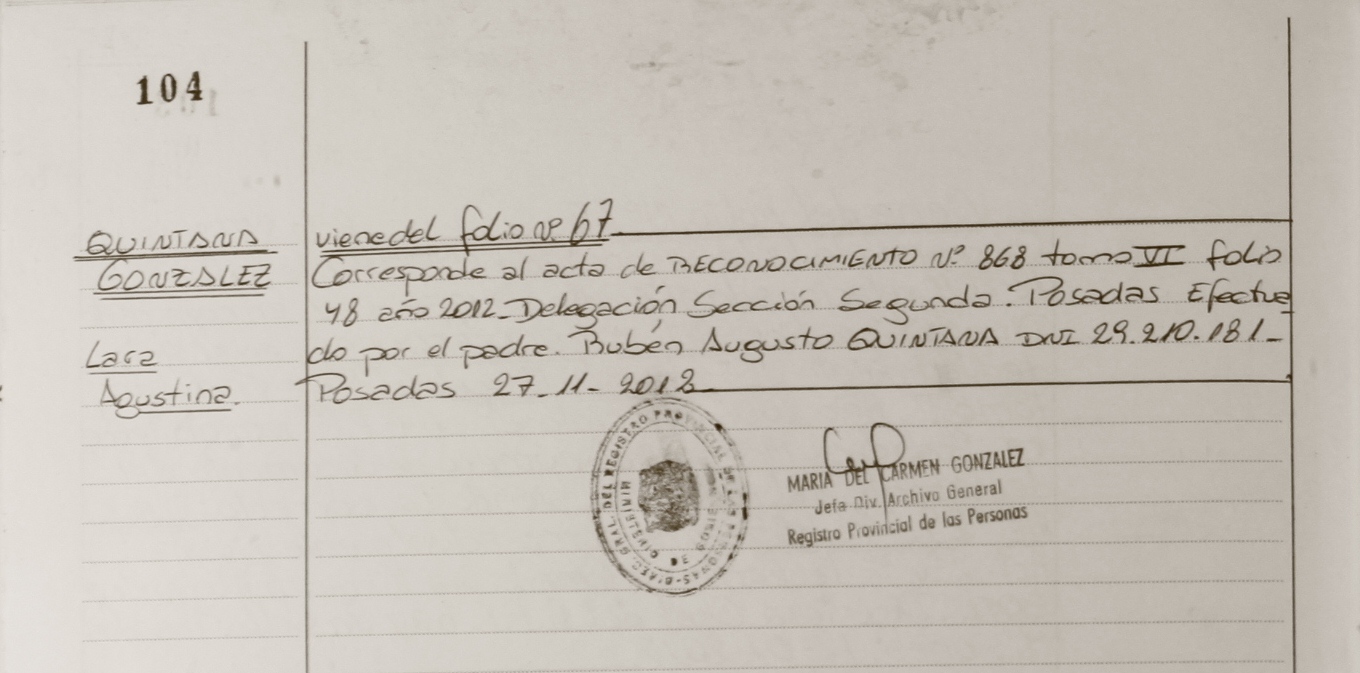 104
QUINTANA
GONZALEZ
Lara
Agustina.
viene del folio nº 67
Corresponde al acta de RECONOCIMIENTO Nº 868 tomo VI folio
48 año 2012_Delegación Sección Segunda. Posadas Efectua
do por el padre. Rubén Augusto QUINTANA DNI 29.210.181_
Posadas 27-11-2012
MARIA DEL CARMEN GONZALEZ
Jefa Div. Archivo General
Registro Provincial de las Personas
GRAL. DEL REGISTRO PROVINCIAL DE LAS PERSONAS-DIREC.
MINISTERIO DE